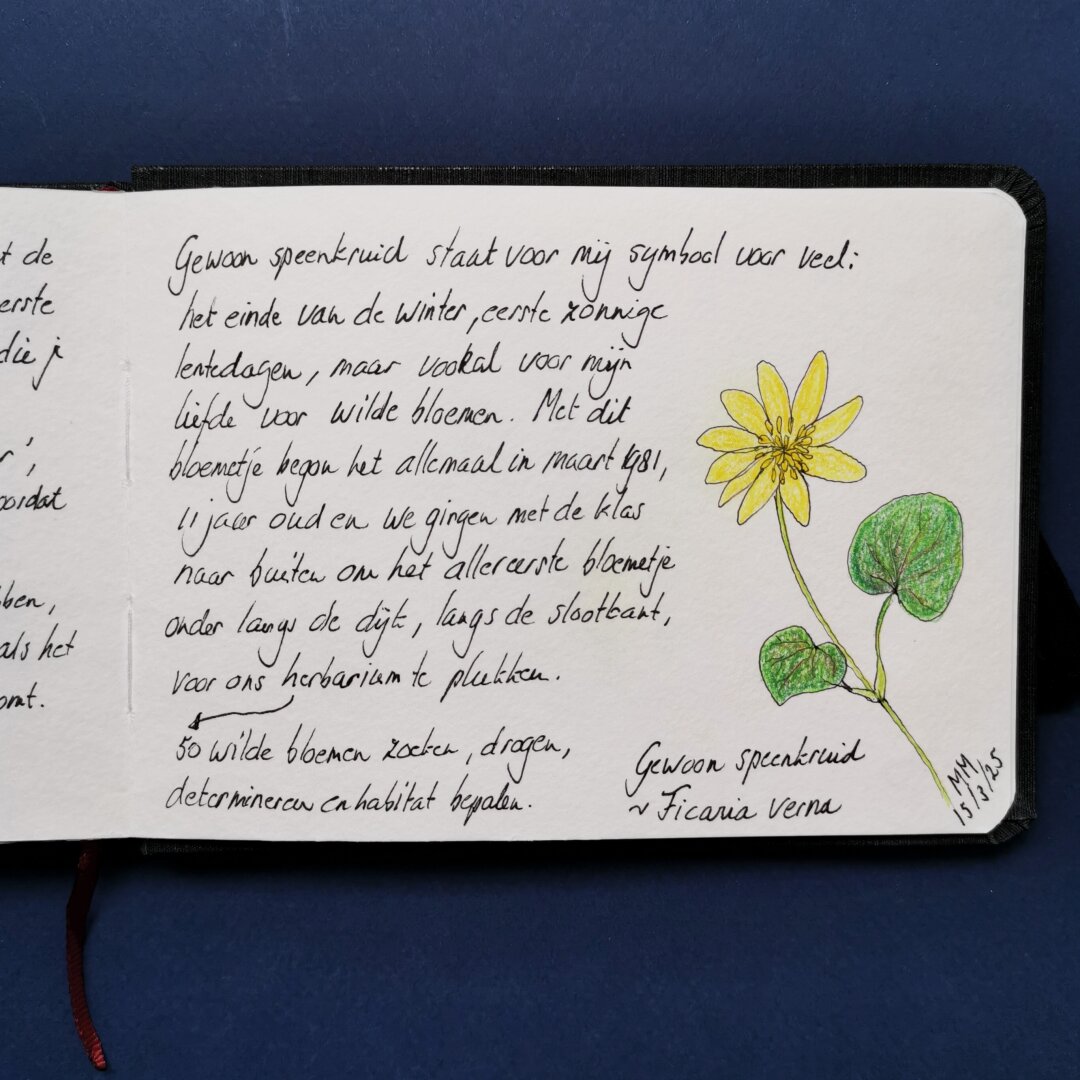 t de
erste
die j
r',
oordat
bben,
als het
omt.
Gewoon speenkruid staat voor mij symbool voor veel:
het einde van de winter, eerste zonnige
lentedagen, maar vooral voor mijn
liefde voor wilde bloemen. Met dit
bloemetje begon het allemaal in maart 1981,
11 jaar oud en we gingen met de klas
naar buiten om het allereerste bloemetje
onder langs de dijk, langs de slootkant,
voor ons herbarium te plukken.
50 wilde bloemen zoeken, drogen,
determineren en habitat bepalen.
Gewoon speenkruid
~ Ficaria verna
MM
15/3/25